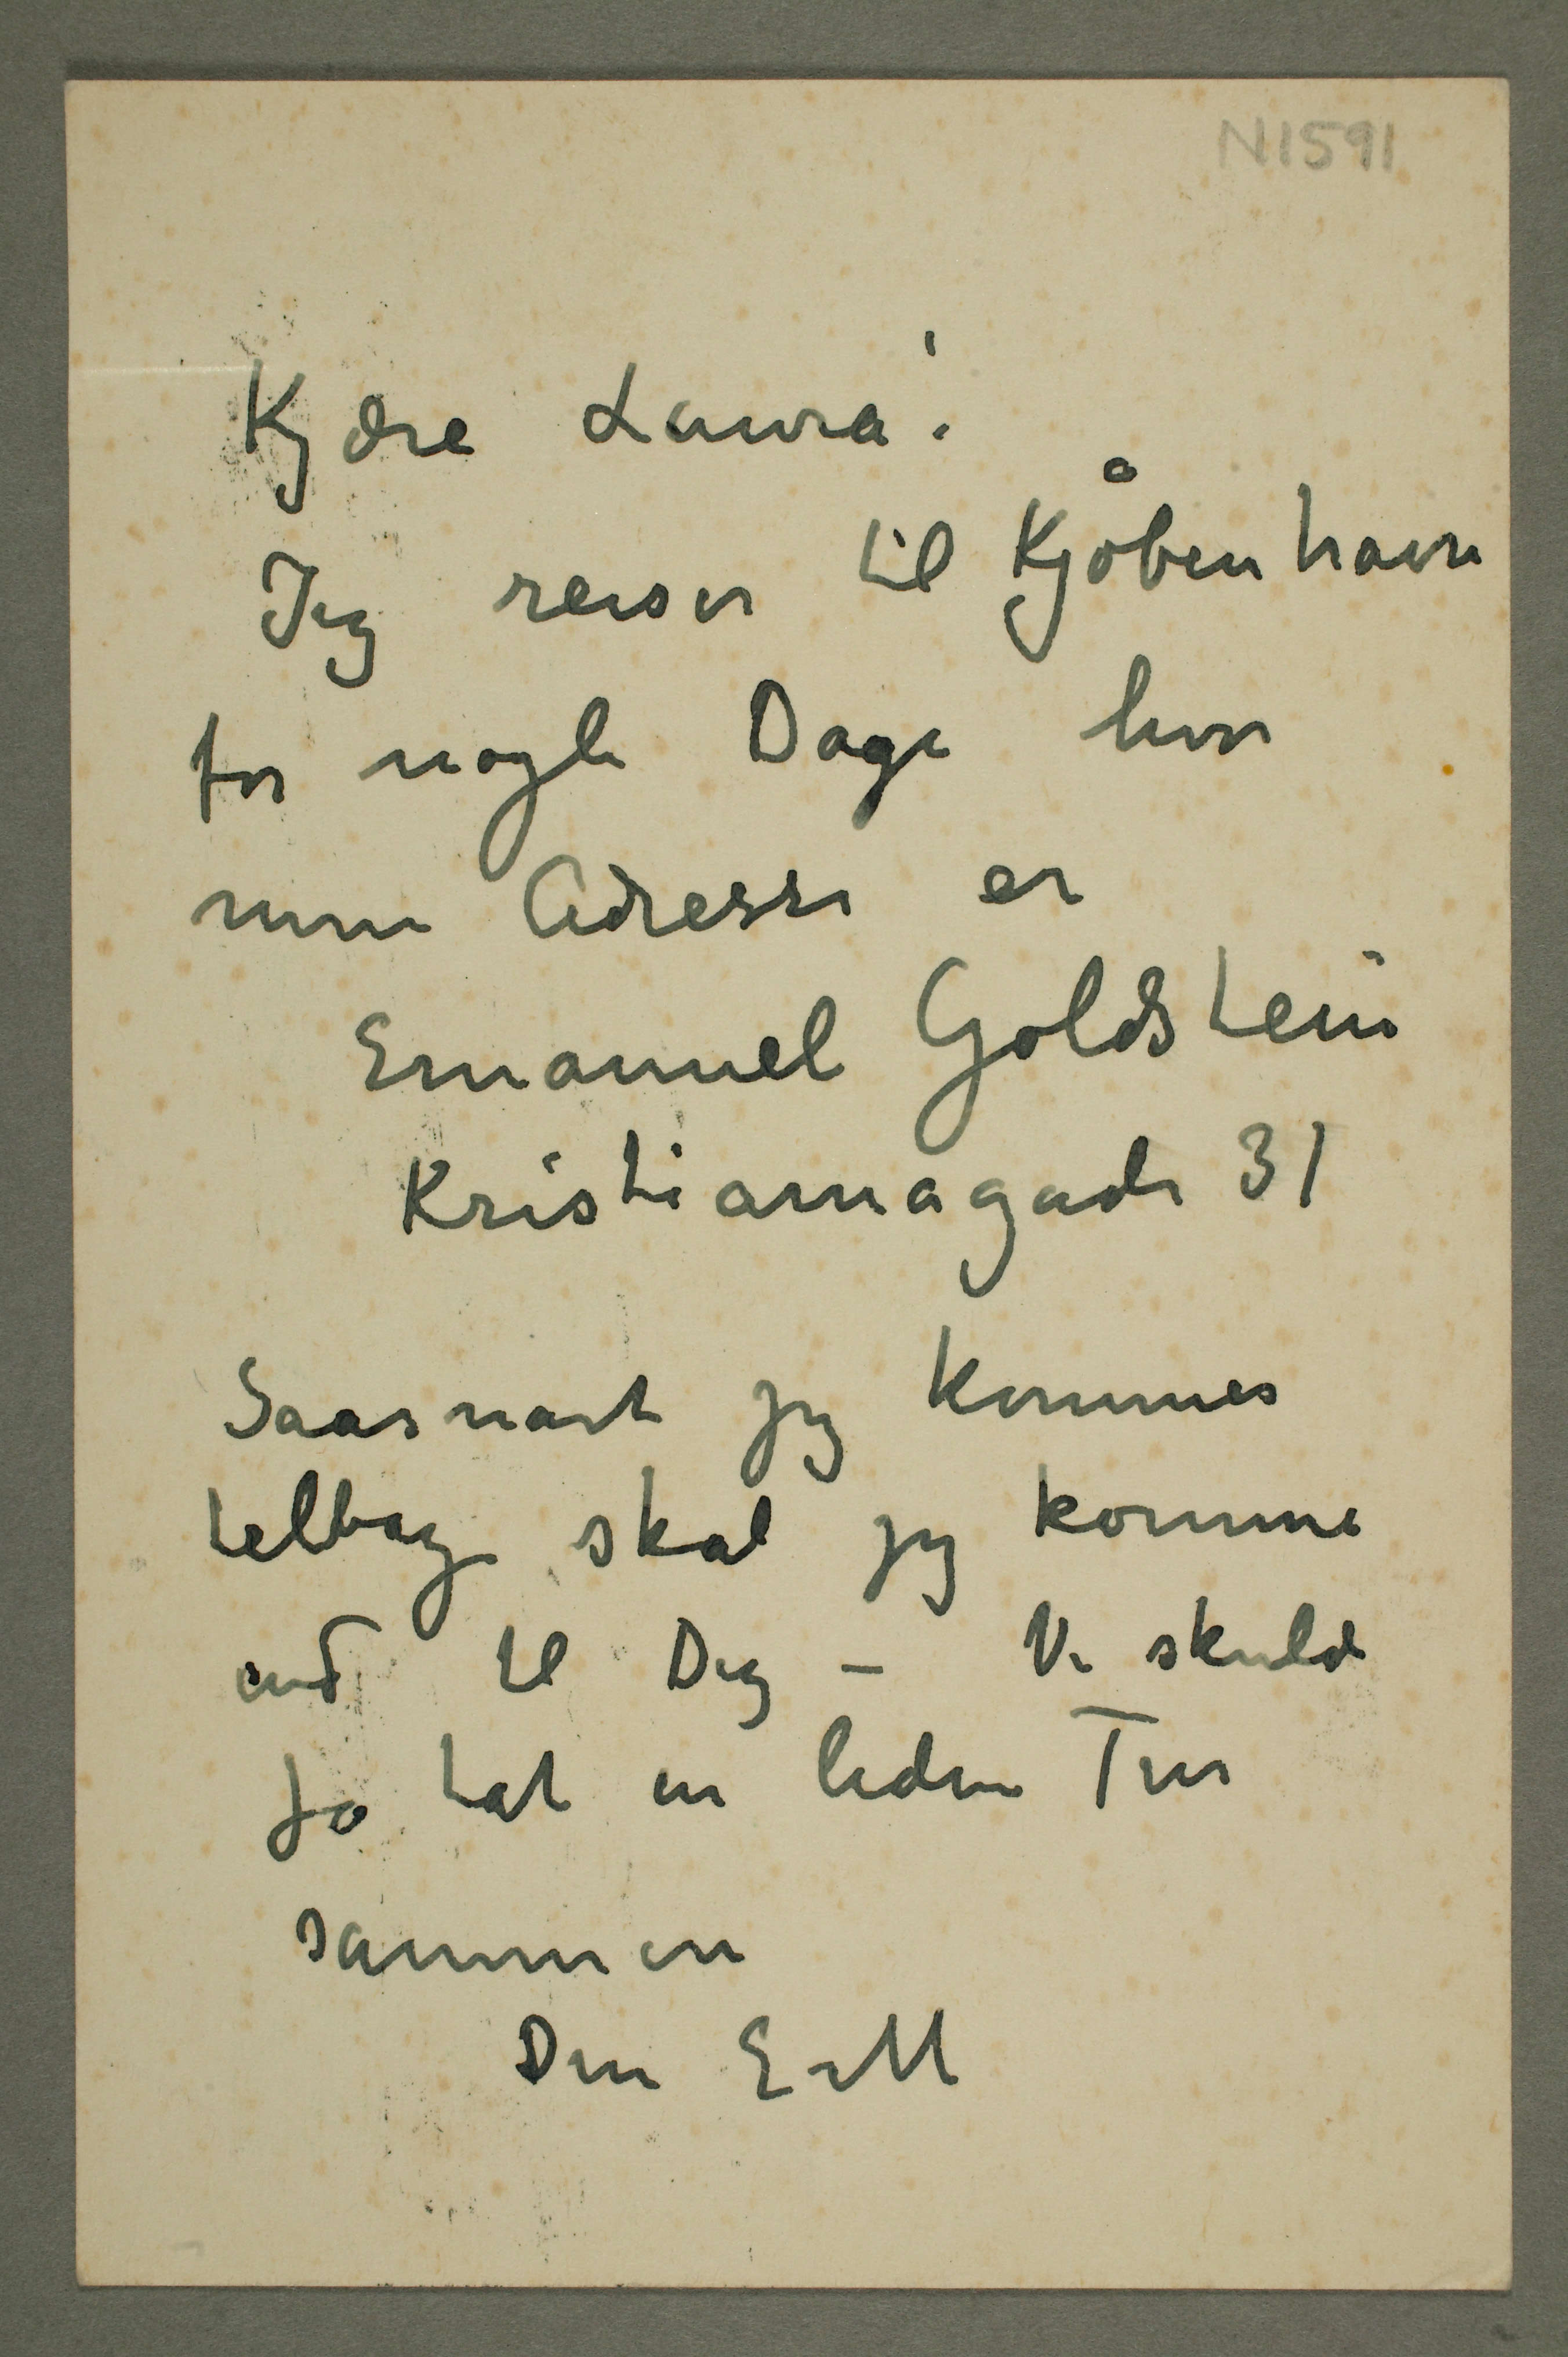 N1591
Kjære Laura!
Jeg reiser til Kjøbenhavn
for nogle Dage hvor
min Adresse er
Emanuel Goldstein
Kristianiagade 31
Saasnart jeg kommer
tilbage skal jeg komme
ind til Dig – Vi skulde
da tat en liden Tur
sammen
Din E M